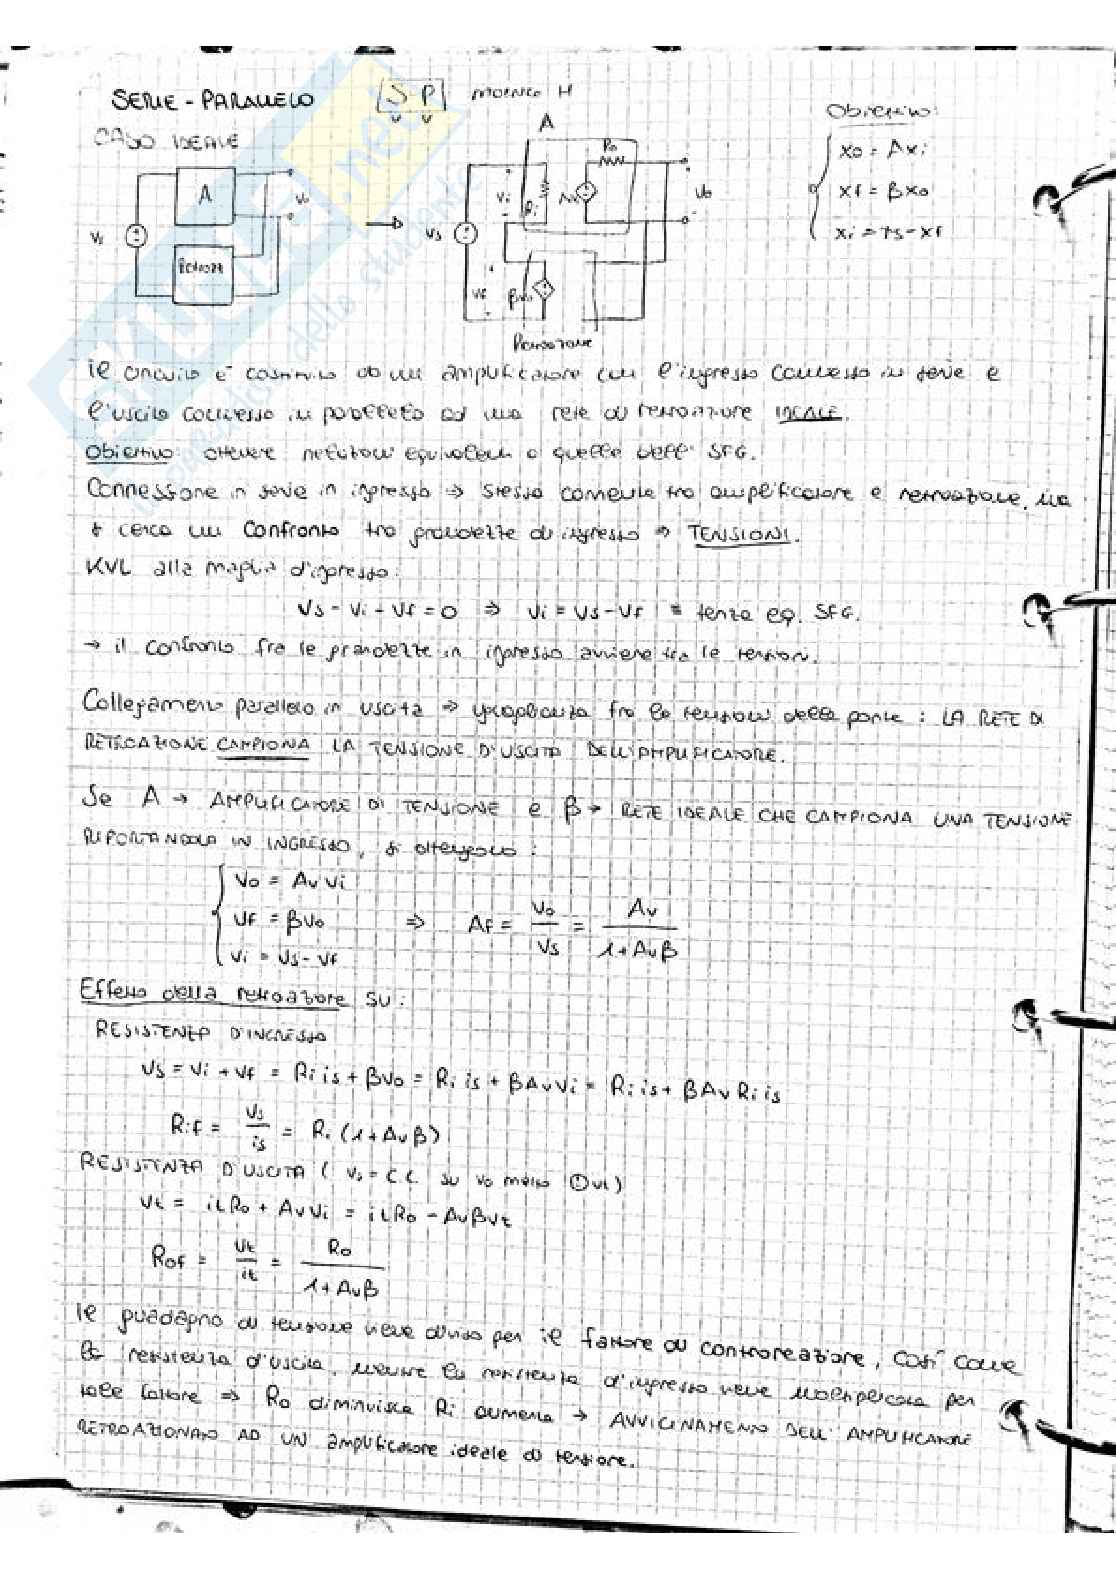 SERIE - PARALLELO [S-P] MODELLO H
V V
CASO IDEALE
A
Obiettivo:
xo = Axi
xf = βxo
xi = xs - xf
A
Vs
Vo
Vs
Vi
Ri
Ro
Vo
Vf
βvo
Retroazione
il circuito è costituito da un amplificatore con l'ingresso connesso in serie e
l'uscita connessa in parallelo ad una rete di retroazione IDEALE.
Obiettivo: ottenere relazioni equivalenti a quelle dell' SFG.
Connessione in serie in ingresso ⇒ stessa corrente tra amplificatore e retroazione, ma
si cerca un confronto tra grandezze di ingresso ⇒ TENSIONI.
KVL alla maglia d'ingresso:
Vs - Vi - Vf = 0 ⇒ Vi = Vs - Vf = terza eq. SFG.
→ il confronto fra le grandezze in ingresso avviene tra le tensioni.
Collegamento parallelo in uscita ⇒ uguaglianza fra le tensioni delle porte : LA RETE DI
RETROAZIONE CAMPIONA LA TENSIONE D'USCITA DELL'AMPLIFICATORE.
Se A → AMPLIFICATORE DI TENSIONE e β → RETE IDEALE CHE CAMPIONA UNA TENSIONE
RIPORTANDOLA IN INGRESSO, si ottengono :
Vo = Av Vi
Vf = βVo ⇒ Af = Vo / Vs = Av / 1+Avβ
Vi = Vs - Vf
Effetto della retroazione su:
RESISTENZA D'INGRESSO
Vs = Vi + Vf = Ri is + βVo = Ri is + βAvVi = Ri is + βAv Ri is
Rif = Vs / is = Ri (1+Avβ)
RESISTENZA D'USCITA ( Vs = C.C. su Vo metto Vt )
Vt = it Ro + AvVi = it Ro - AvβVt
Rof = Vt / it = Ro / 1+Avβ
il guadagno di tensione viene diviso per il fattore di controreazione, così come
la resistenza d'uscita, mentre la resistenza d'ingresso viene moltiplicata per
tale fattore ⇒ Ro diminuisce Ri aumenta → AVVICINAMENTO DELL' AMPLIFICATORE
RETROAZIONATO AD UN amplificatore ideale di tensione.